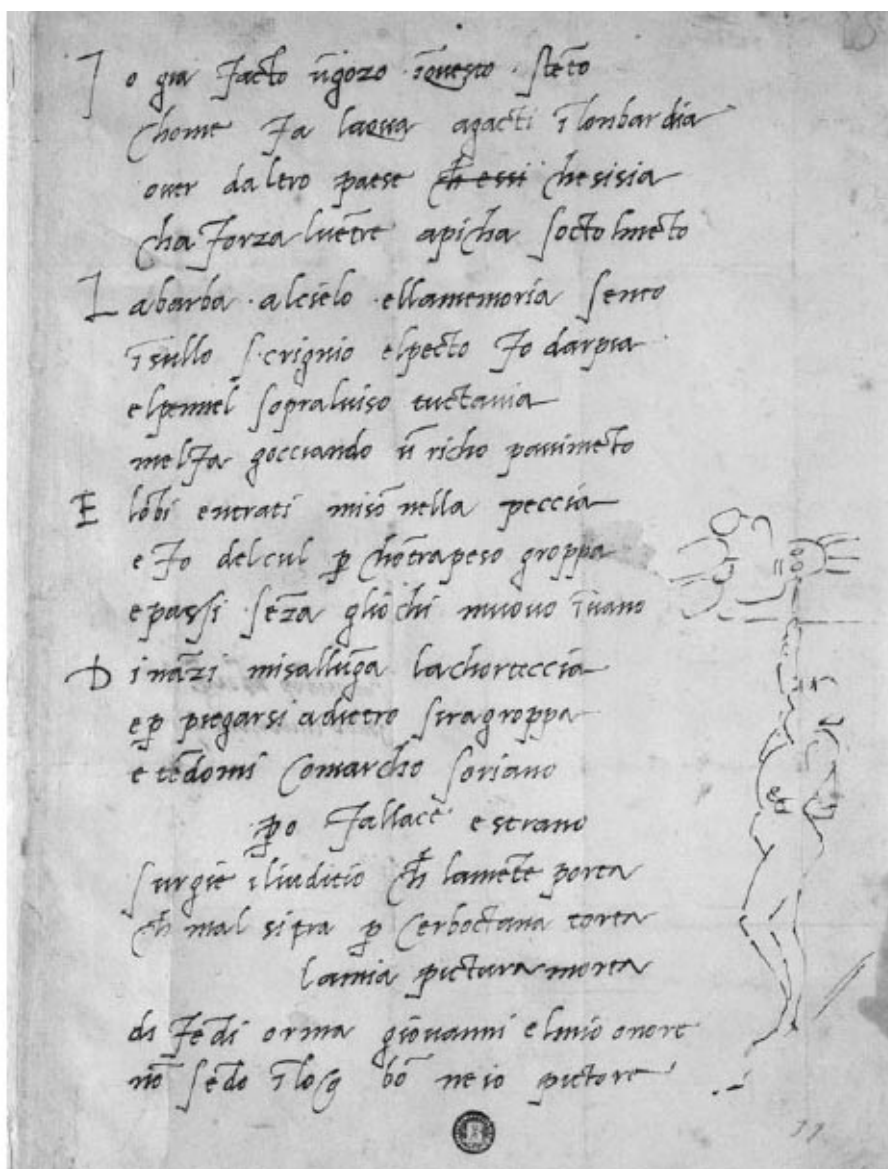 I o gia facto ū gozo ī questo stēto
chome fa laqua a gacti ī lonbardia
over daltro paese ch essi che si sia
cha forza lvētre apicha socto lmēto
L a barba · al cielo · ella memoria sento
ī sullo scrignio e lpecto fo darpia
e lpennel sopra lviso tuctavia
mel fa gocciando ū richo pavimēto
E lōbi entrati mi sō nella peccia
e fo del cul p chōtrapeso groppa
e passi sēza gliochi muovo ī vano
D ināzi mi sallūga la chorteccia
e p piegarsi adietro si ragroppa
e tēdomi comarcho soriano
po fallace e strano
surgie il iuditio ch la mēte porta
ch mal si tra p cerboctana torta
la mia pictura morta
di fēdi orma giovanni e lmio onore
nō sēdo ī loco bō ne io pictore